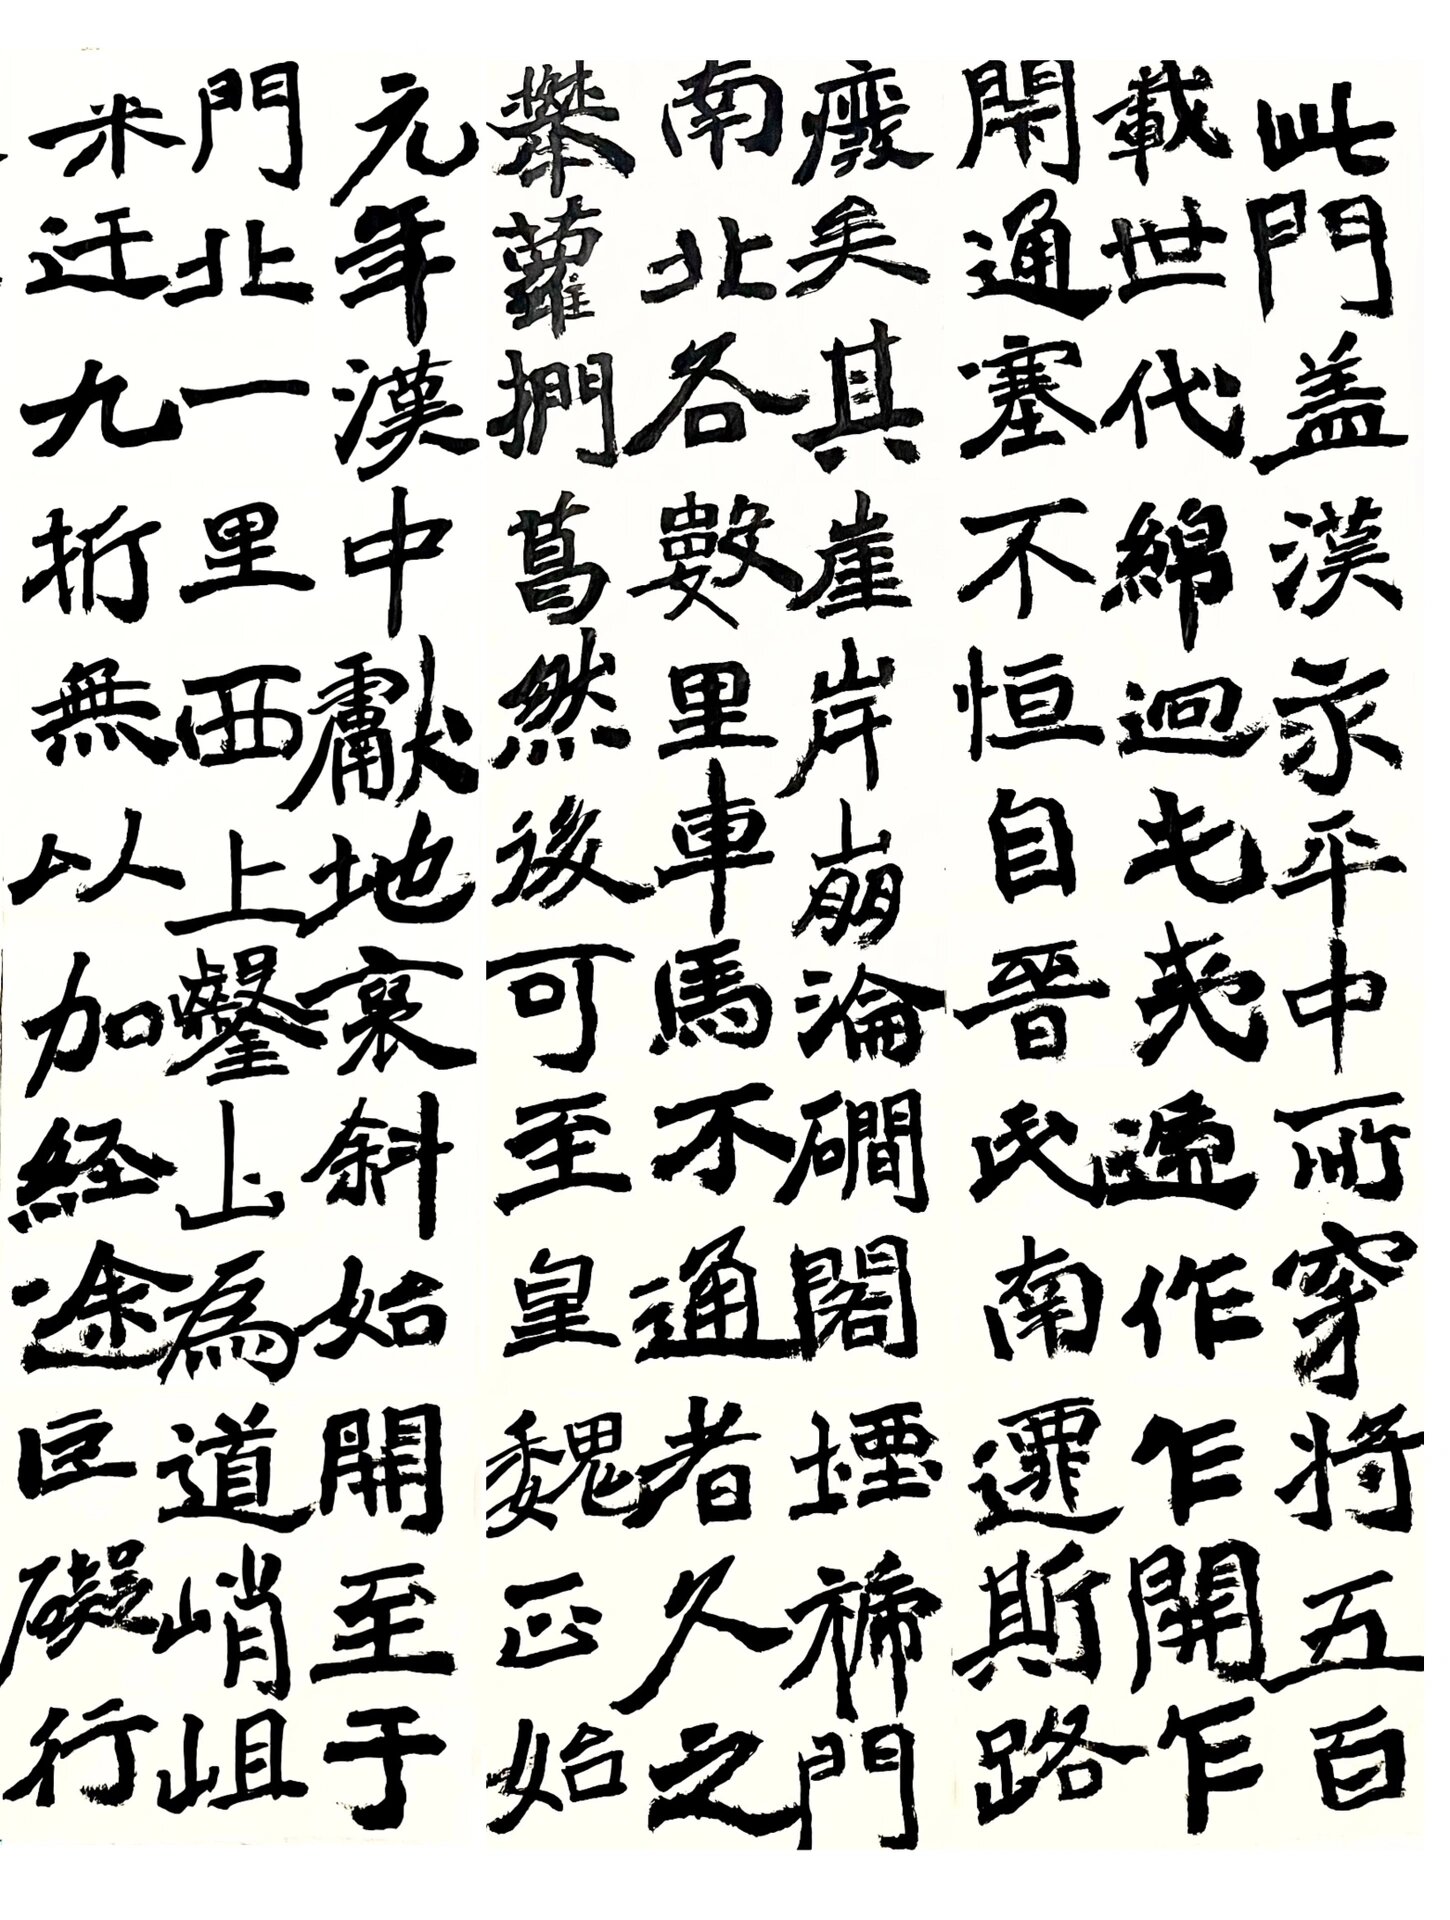 此門盖漢永平中所穿將五百
載世代綿迴屯夷遞作乍開乍
閇通塞不恒自晉氏南遷斯路
廢矣其崖岸崩淪磵閣堙褫門
南北各數里車馬不通者久之
攀蘿捫葛然後可至皇魏正始
元年漢中獻地裒斜始開至于
門北一里西上鑿山為道峭岨
米迂九折無以加経途巨礙行